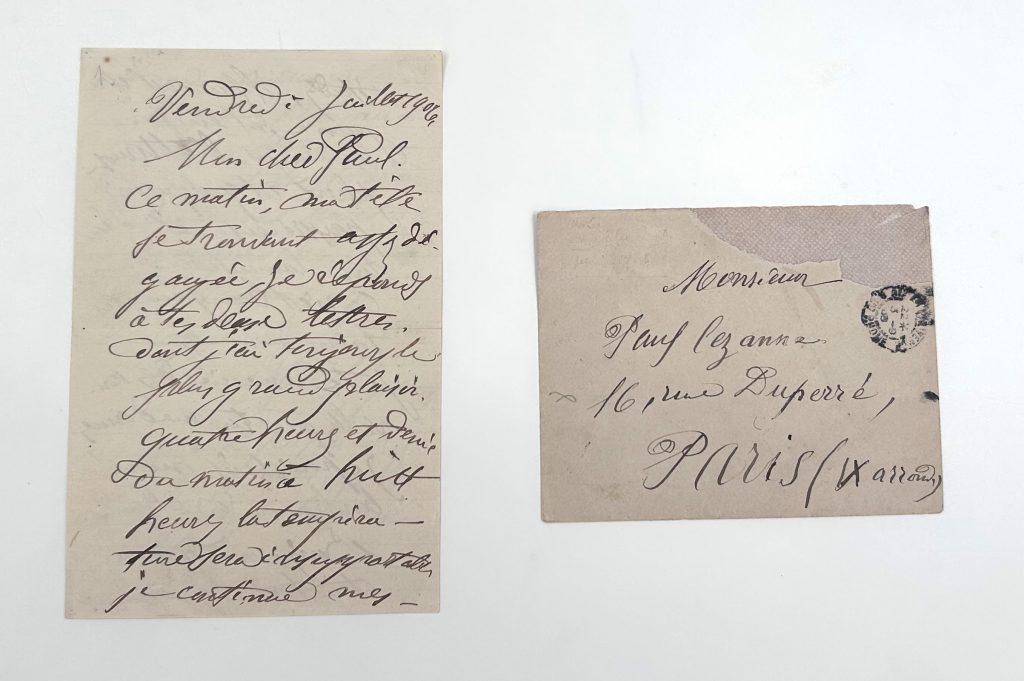 1.
Vendredi Juillet 1906,
Mon cher Paul.
Ce matin, ma tête
se trouvant assez dé-
gagée, je réponds
à tes deux lettres.
dont j'ai toujours le
plus grand plaisir.
quatre heures et demie
du matin à huit
heures la température
ture sera insupportable
je continue mes
Monsieur
Paul Cezanne
16, rue Duperré,
Paris (IX arrond)